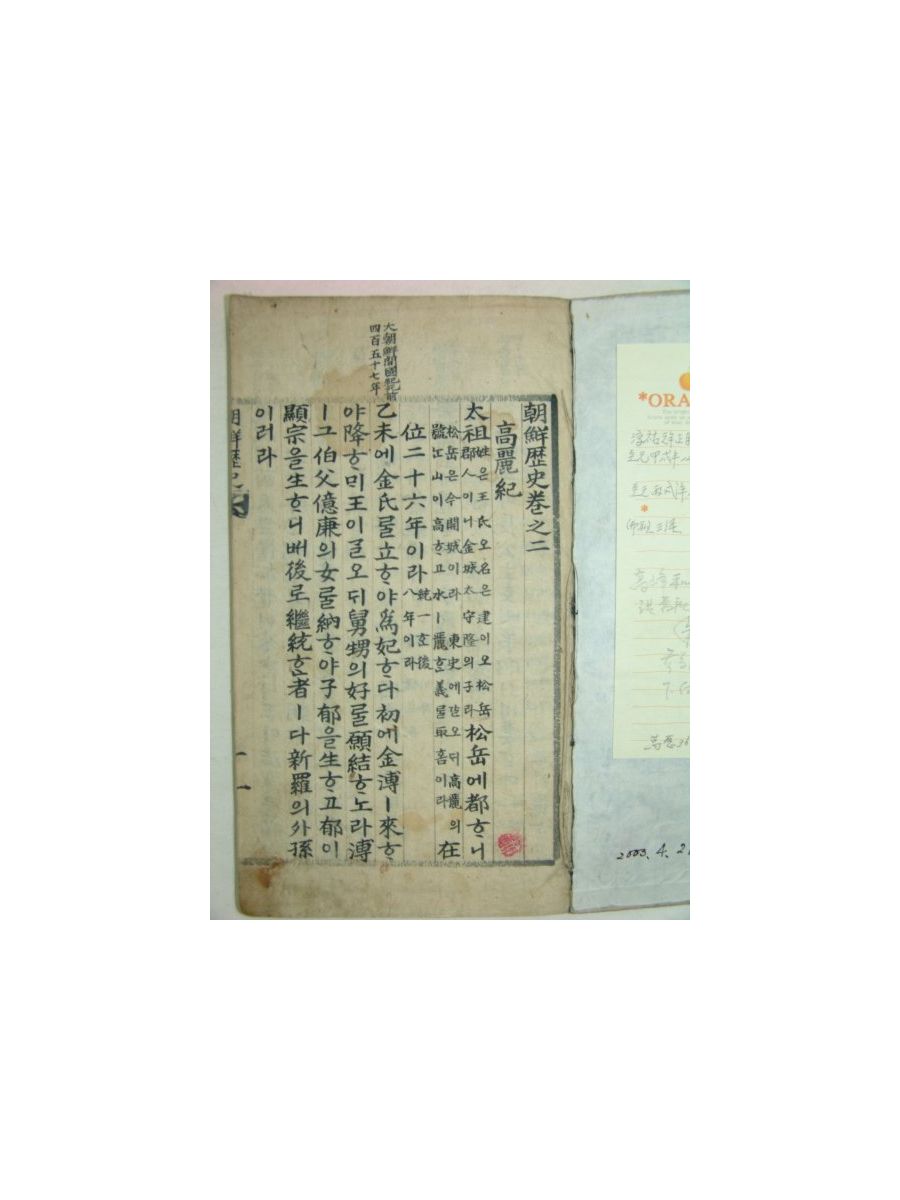 朝鮮歷史卷之二
高麗紀
太祖 姓은 王氏오 名은 建이오 松岳
郡人이니 金城太守隆의 子라 松岳에 都ᄒᆞ니
松岳은 今 開城이라 東史에 ᄀᆞᆯ오ᄃᆡ 高麗의
號ᄂᆞᆫ 山이 高ᄒᆞ고 水ㅣ 麗ᄒᆞᆫ 義ᄅᆞᆯ 取홈이라 在
位二十六年이라 統一ᄒᆞᆫ 後
八年이라
大朝鮮開國紀前
四百五十七年
乙未에 金氏ᄅᆞᆯ 立ᄒᆞ야 爲妃ᄒᆞ다 初에 金溥ㅣ 來ᄒᆞ
야 降ᄒᆞᄆᆡ 王이 ᄀᆞᆯ오ᄃᆡ 舅甥의 好ᄅᆞᆯ 願結ᄒᆞ노라 溥
ㅣ 그 伯父億廉의 女ᄅᆞᆯ 納ᄒᆞ야 子郁을 生ᄒᆞ고 郁이
顯宗을 生ᄒᆞ니 此後로 繼統ᄒᆞᆫ 者ㅣ 다 新羅의 外孫
이러라
朝鮮歷史
一
*ORA
*
2003. 4. 2